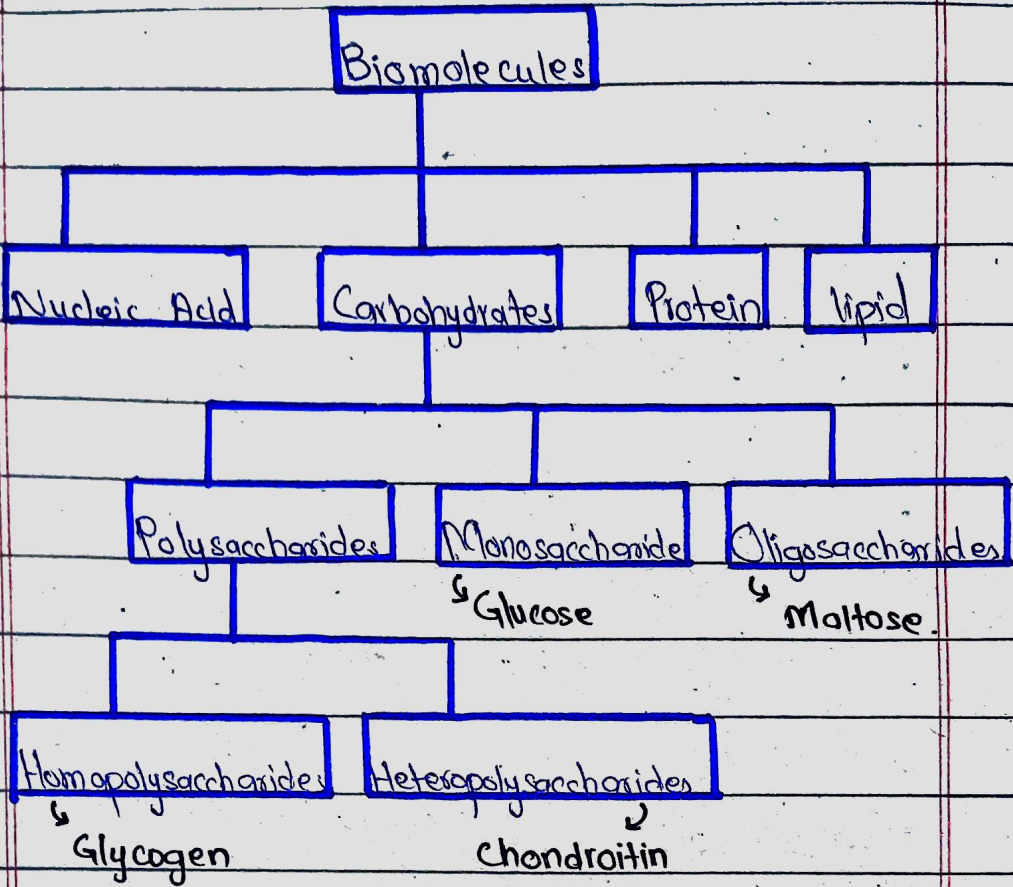 Biomolecules
Nucleic Acid Carbohydrates Protein lipid
Polysaccharides Monosaccharide Oligosaccharides
Glucose Maltose.
Homopolysaccharides Heteropolysaccharides
Glycogen Chondroitin